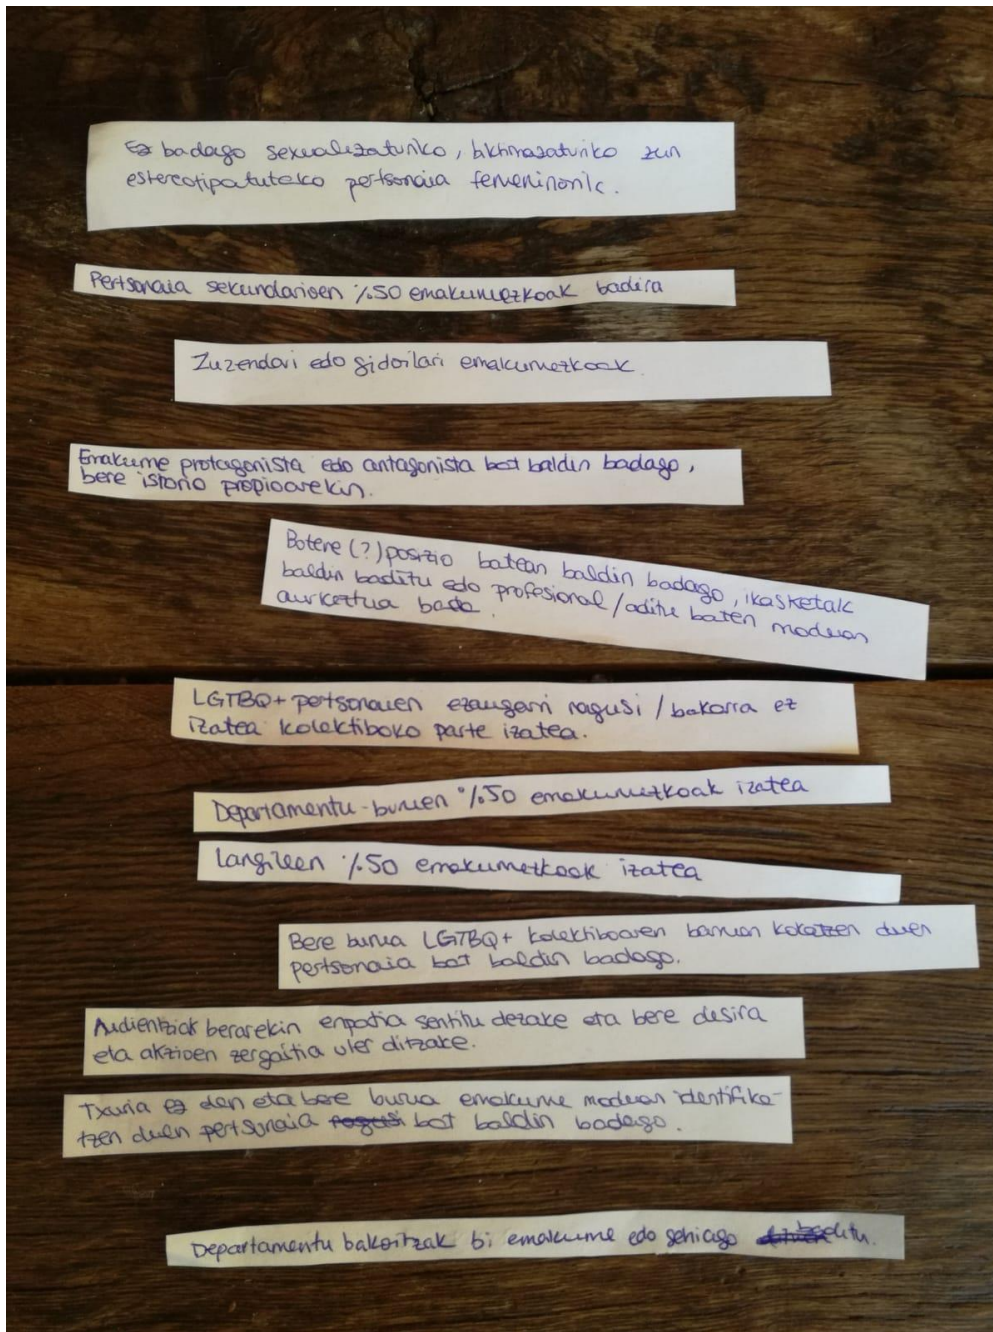 Ez badago sexualizaturiko, biktimazaturiko zein
estereotipatutako pertsonaia femeninorik.
Pertsonaia sekundarioen %50 emakumezkoak badira
Zuzendari edo gidoilari emakumezkoak.
Emakume protagonista edo antagonista bat baldin badago,
bere istorio propioarekin.
Botere (?) posizio batean baldin badago, ikasketak
baldin baditu edo profesional/aditu baten moduan
aurkeztua bada.
LGTBQ+ pertsonaien ezaugarri nagusi/bakarra ez
izatea kolektiboko parte izatea.
Departamentu-buruen %50 emakumezkoak izatea
Langileen %50 emakumezkoak izatea
Bere burua LGTBQ+ kolektiboaren barruan kokatzen duen
pertsonaia bat baldin badago.
Audientziak berarekin enpatia sentitu dezake eta bere desira
eta akzioen zergaitia uler ditzake.
Txuria ez den eta bere burua emakume moduan identifika-
tzen duen pertsonaia nagusi bat baldin badago.
Departamentu bakoitzak bi emakume edo gehiago baditu.